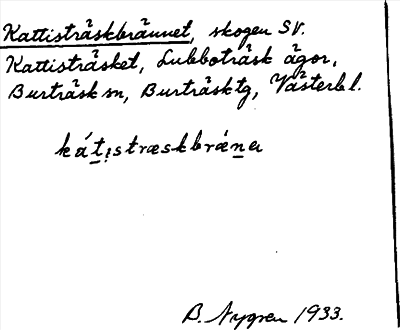 Kattisträskbrännet, skogen SV.
Kattisträsket, Lubboträsk ägor,
Burträsk sn, Burträsk tg, Västerbl.
ká̱ṯi̱stræskbrǽṉa
B. Nygren 1933.